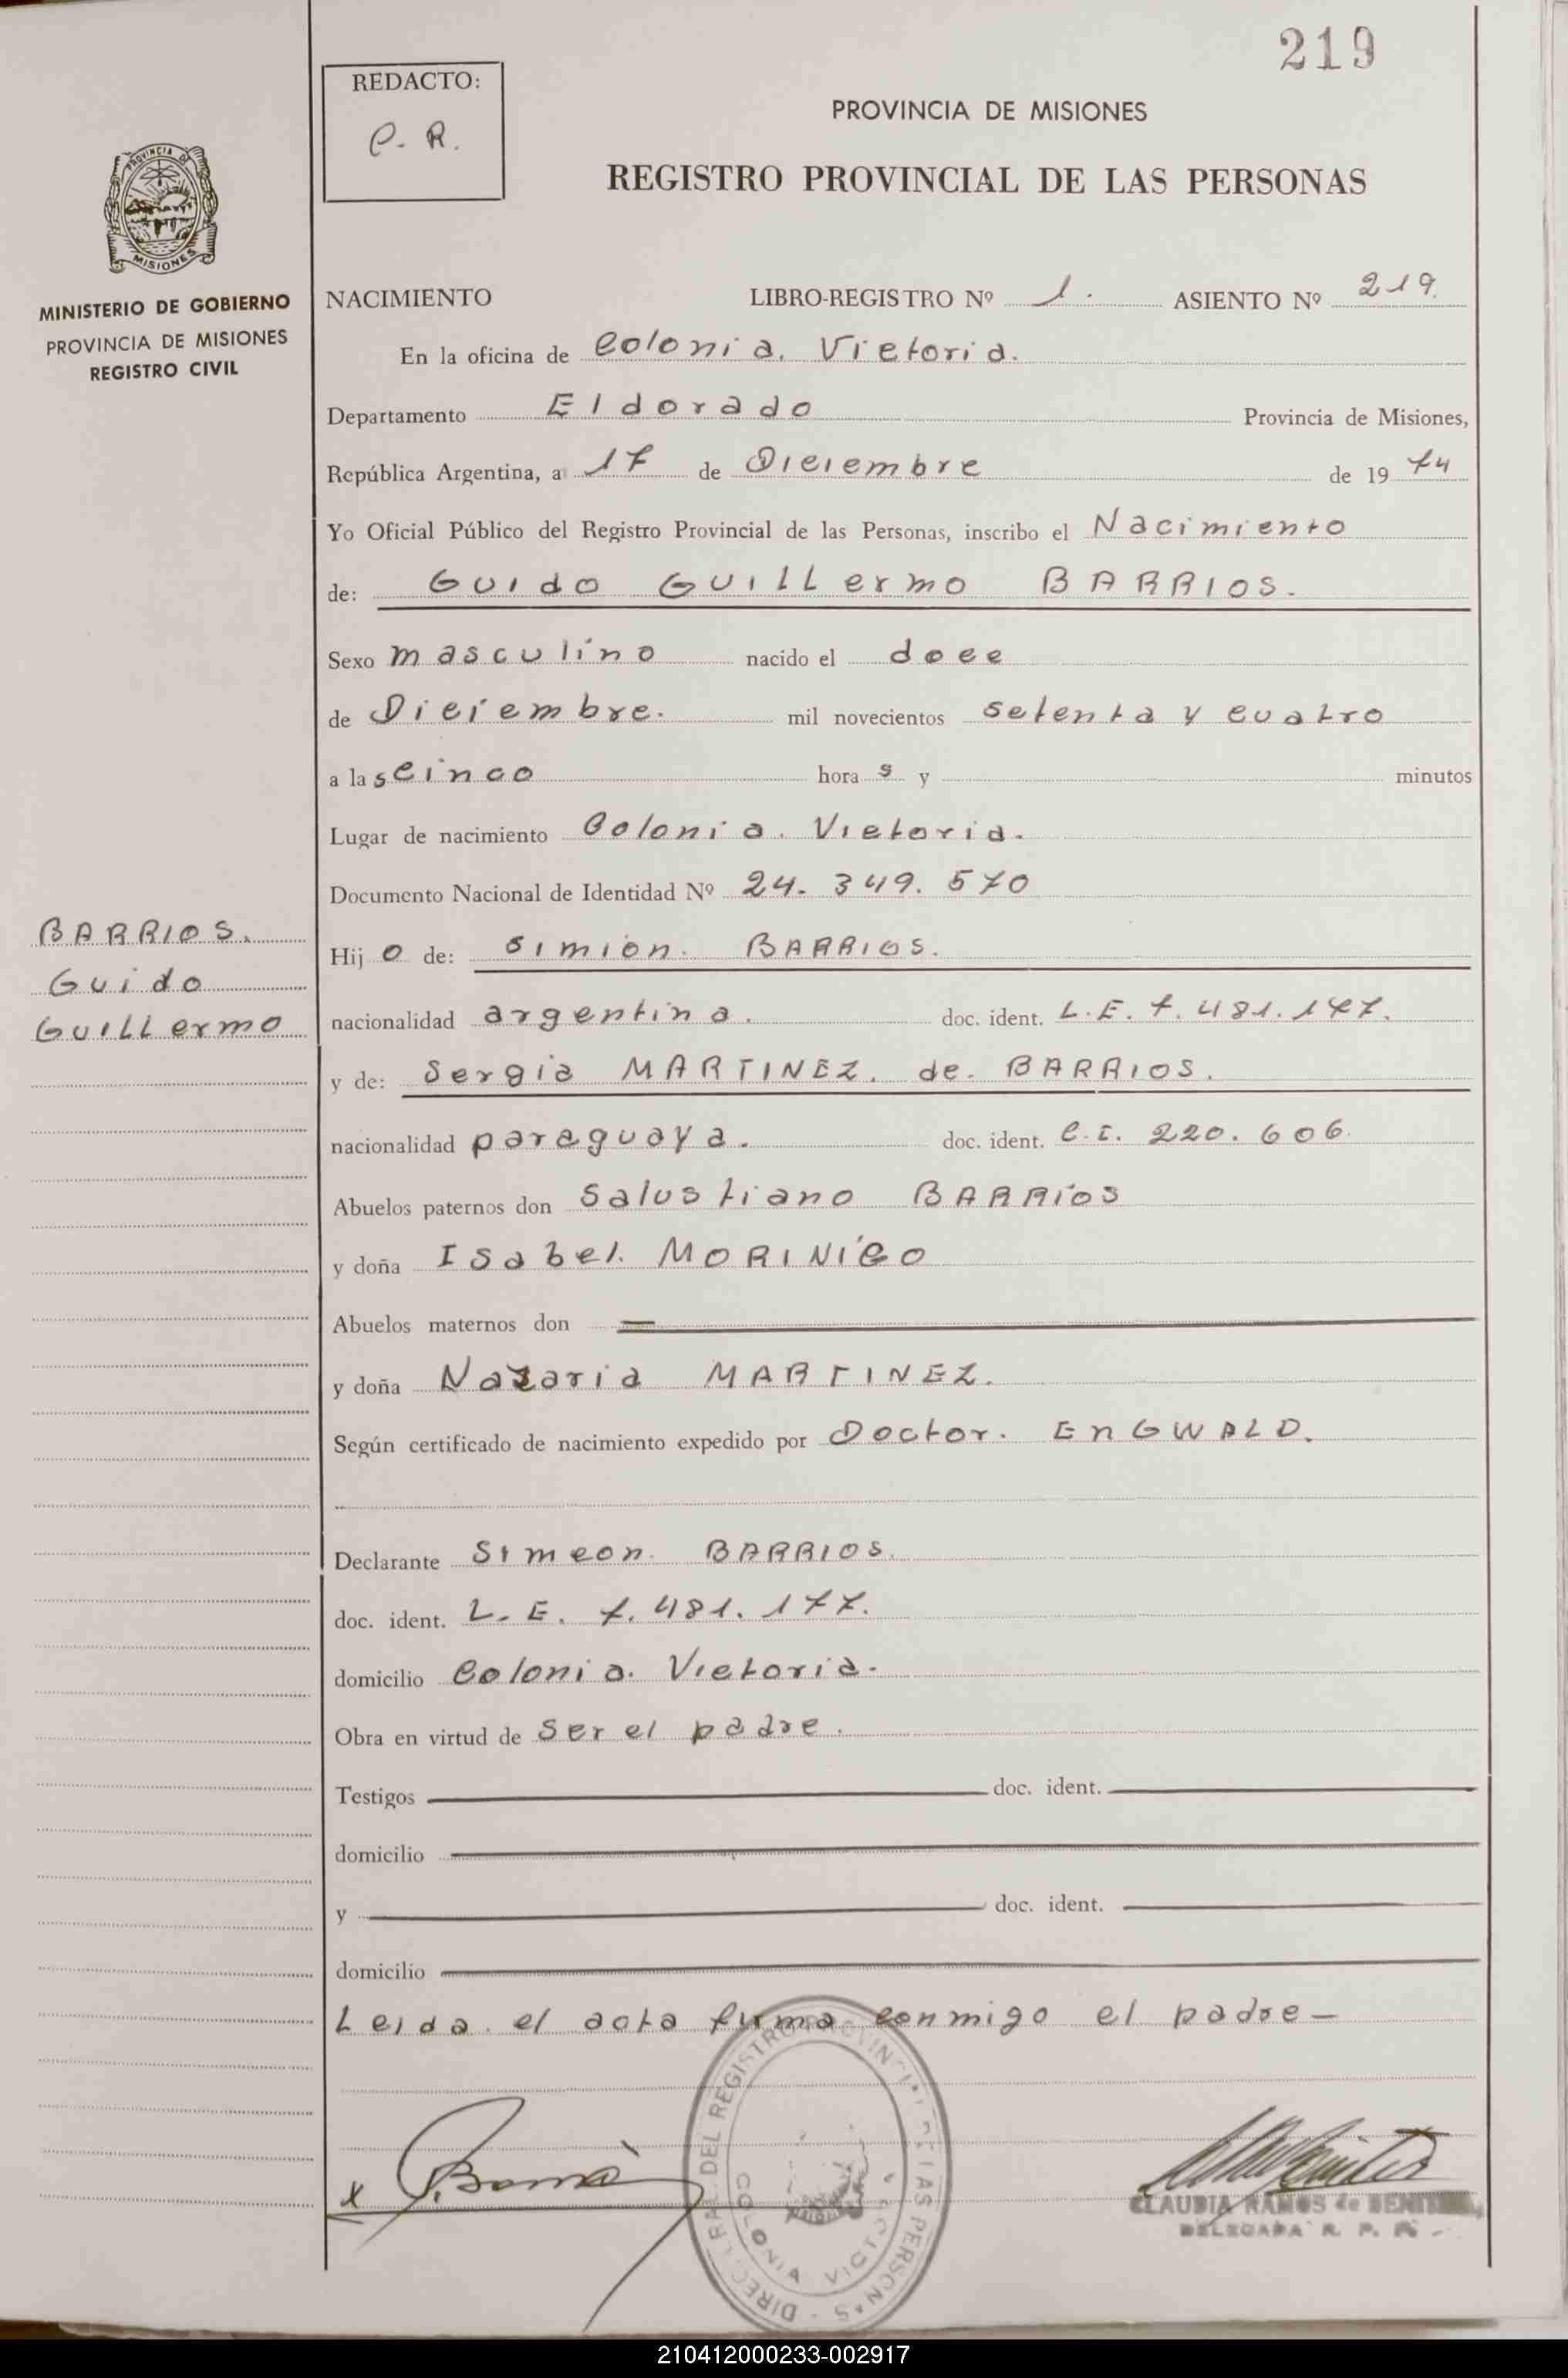 219
REDACTO:
C. R.
PROVINCIA DE MISIONES
REGISTRO PROVINCIAL DE LAS PERSONAS
PROVINCIA DE
MISIONES
MINISTERIO DE GOBIERNO
PROVINCIA DE MISIONES
REGISTRO CIVIL
NACIMIENTO LIBRO-REGISTRO Nº 1. ASIENTO Nº 219.
En la oficina de Colonia. Victoria.
Departamento Eldorado Provincia de Misiones,
República Argentina, a 17 de Diciembre de 1974
Yo Oficial Público del Registro Provincial de las Personas, inscribo el Nacimiento
de: Guido GUILLermo BARRIOS.
Sexo masculino nacido el doce
de Diciembre. mil novecientos setenta y cuatro
a las cinco horas y minutos
Lugar de nacimiento Colonia. Victoria.
Documento Nacional de Identidad Nº 24. 349. 570
BARRIOS.
Guido
GUILLermo
Hijo de: simion. BARRIOS.
nacionalidad argentina. doc. ident. L.E. 7.481.177.
y de: Sergia MARTINEZ. de. BARRIOS.
nacionalidad paraguaya. doc. ident. C.I. 220.606.
Abuelos paternos don Salustiano BARRIOS
y doña Isabel. MORINIGO
Abuelos maternos don
y doña Nazaria MARTINEZ.
Según certificado de nacimiento expedido por Doctor. EnGWALD.
Declarante Simeon. BARRIOS.
doc. ident. L. E. 7. 481. 177.
domicilio Colonia. Victoria.
Obra en virtud de ser el padre.
Testigos doc. ident.
domicilio
y doc. ident.
domicilio
Leida. el acta firma conmigo el padre-
DIREC. GRAL. DEL REGISTRO PROVINCIAL DE LAS PERSONAS -
COLONIA VICTORIA
CLAUDIA RAMOS de BENITEZ
DELEGADA R. P. P.
210412000233-002917